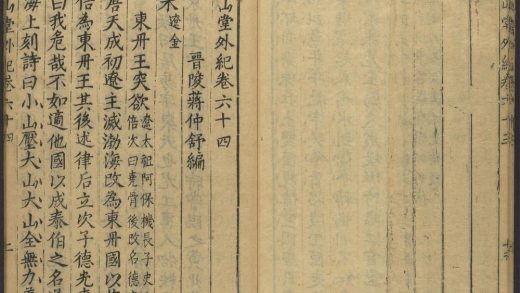 山堂外紀卷六十四
晉陵蔣仲舒編
遼金
東丹王突欲
遼太祖阿保機長子史
倍次曰堯骨後改名德
唐天成初遼主滅渤海改為東丹國以
倍為東丹王其後述律后立次子德光
曰我危哉不如適他國以成泰伯之名
海上刻詩曰小山壓大山大山全無力
卷六十四
一